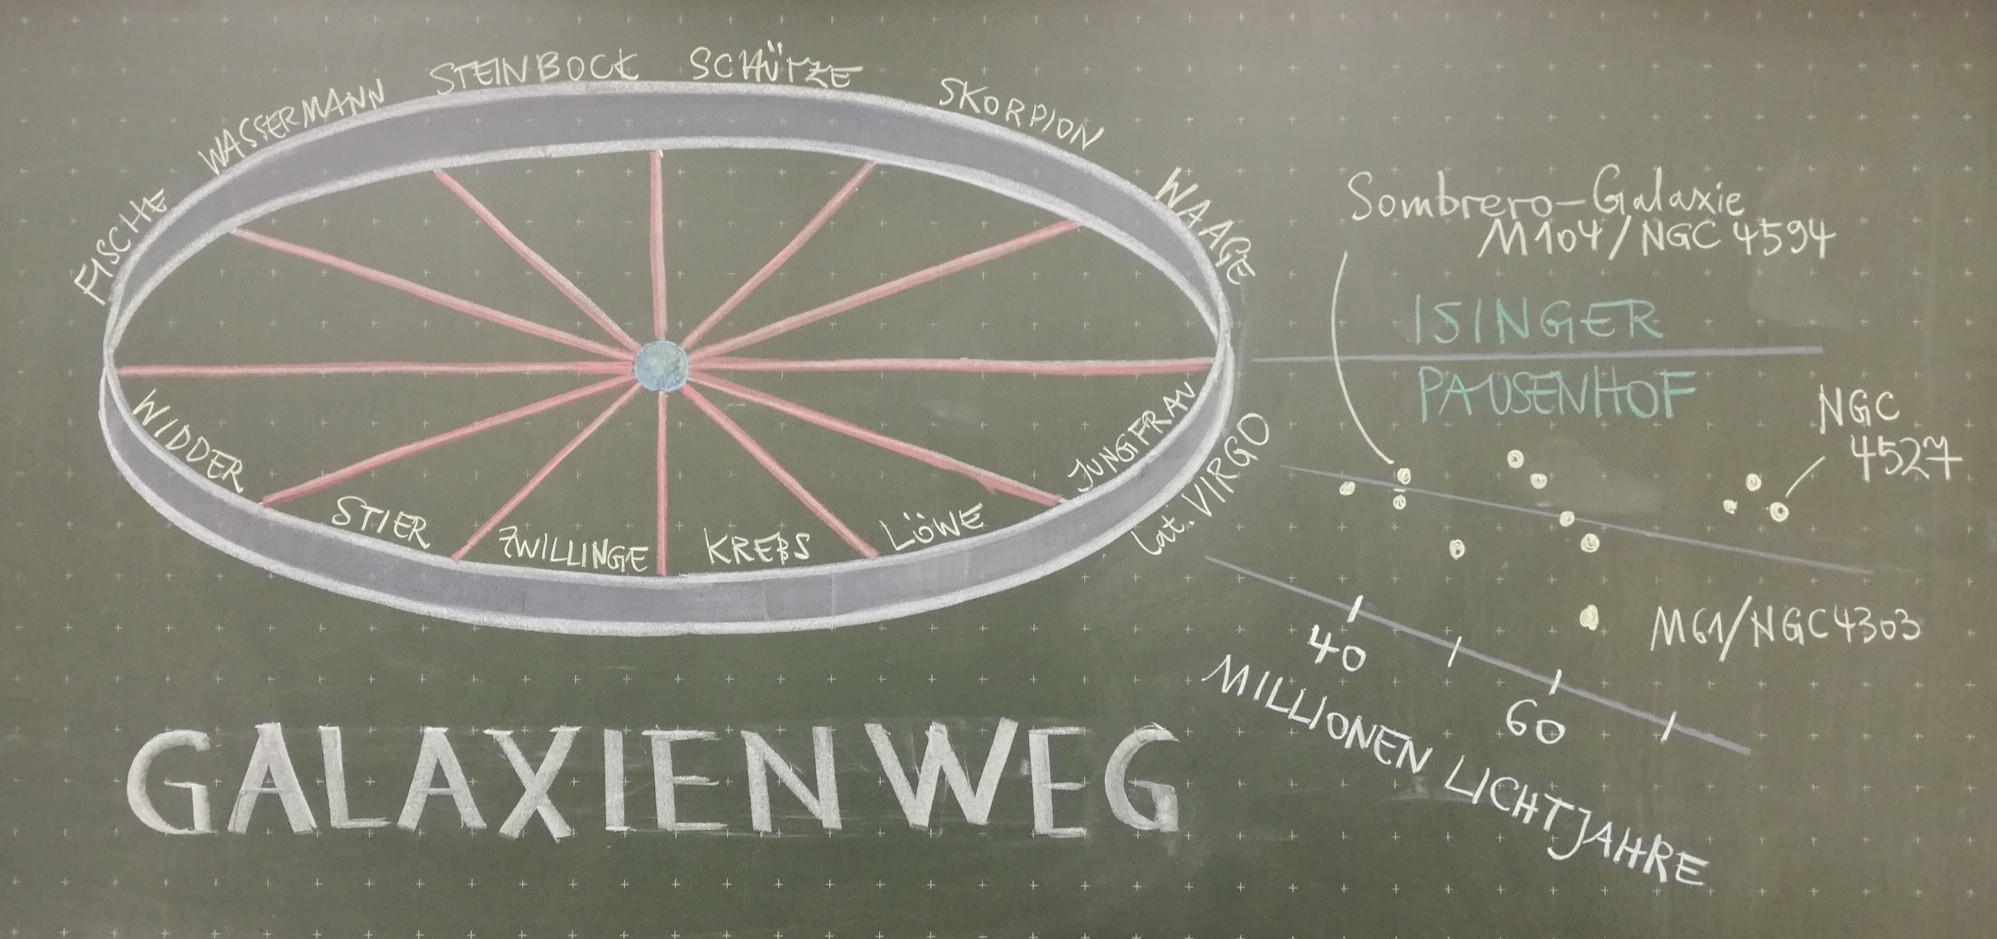 FISCHE
WASSERMANN
STEINBOCK
SCHÜTZE
SKORPION
WAAGE
WIDDER
STIER
ZWILLINGE
KREBS
LÖWE
JUNGFRAU
lat. VIRGO
Sombrero-Galaxie
M104/NGC 4594
ISINGER
PAUSENHOF
NGC
4527
M61/NGC4303
40
60
MILLIONEN LICHTJAHRE
GALAXIENWEG